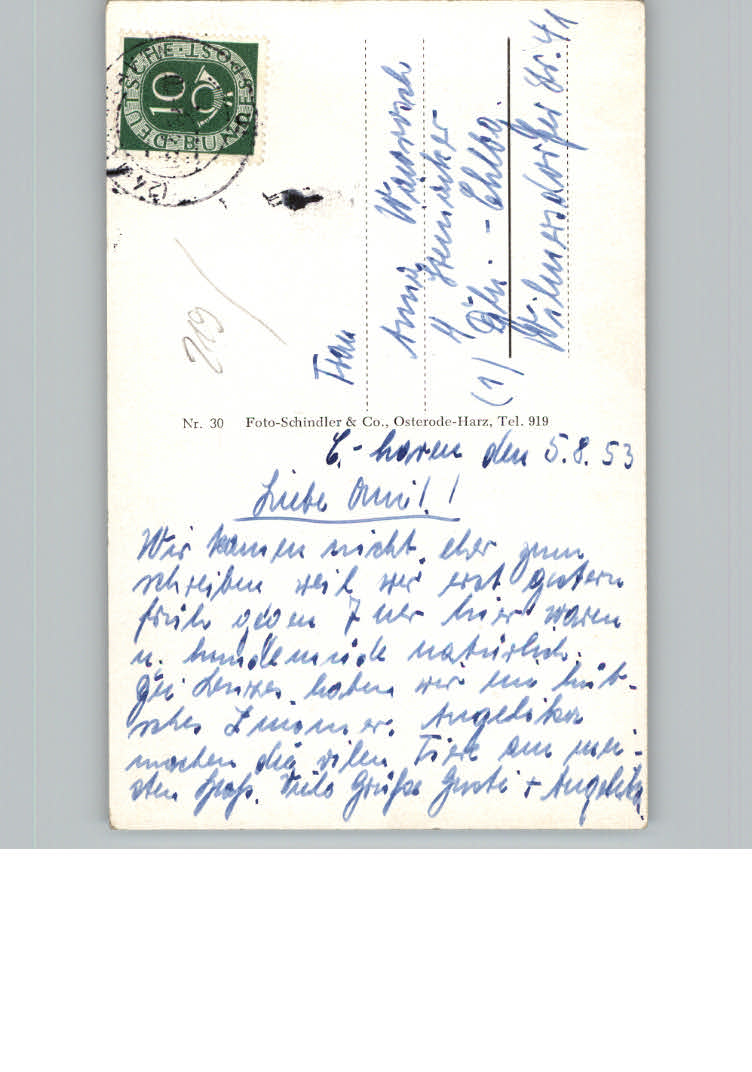 DEUTSCHE BUNDESPOST
10
219
Frau
Anna
(1) Bln. - Chlbg.
Wilmersdorfer Str. 41
Nr. 30 Foto-Schindler & Co., Osterode-Harz, Tel. 919
C.-haven den 5.8.53
Liebe Omi!!
Wir kamen nicht eher zum
schreiben weil wir erst gestern
früh gegen 7 uer hier waren
u. hundemüde natürlich.
Bei haben wir ein hüb-
sches Zimmer. Angelika
machen die vilen Tiere am mei-
sten Spaß. Viele Grüße Gusti + Angelika